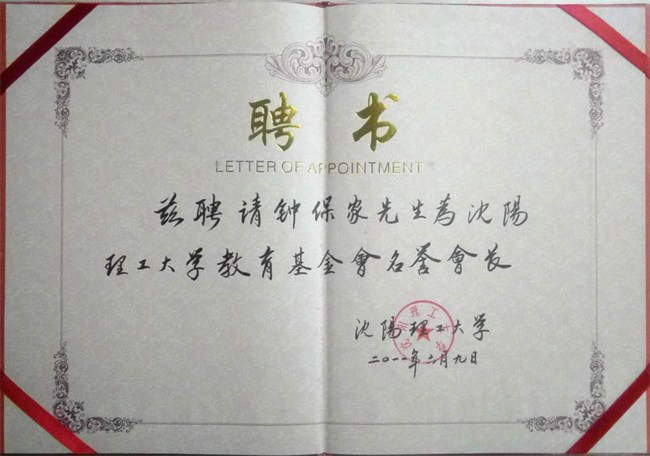 聘书
LETTER OF APPOINTMENT
兹聘请钟保家先生為沈陽
理工大学教育基金會名誉會长
沈陽理工大学
二〇一一年二月九日